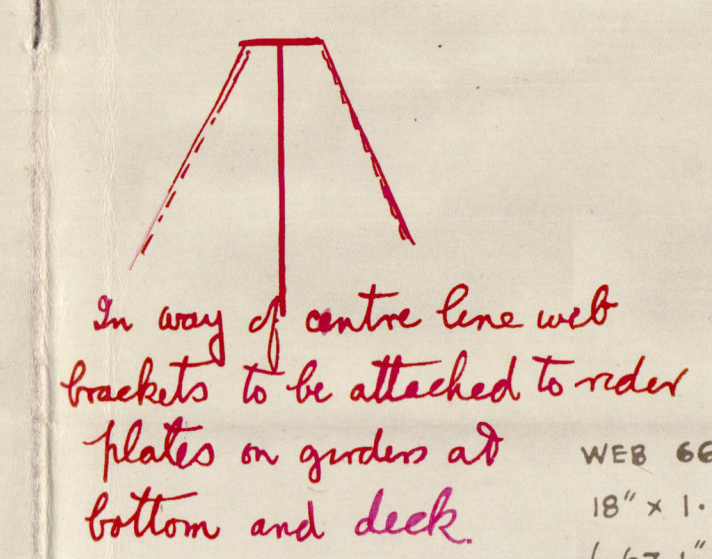 In way of centre line web
brackets to be attached to rider
plates on girders at
bottom and deck.
WEB 66
18" x 1.